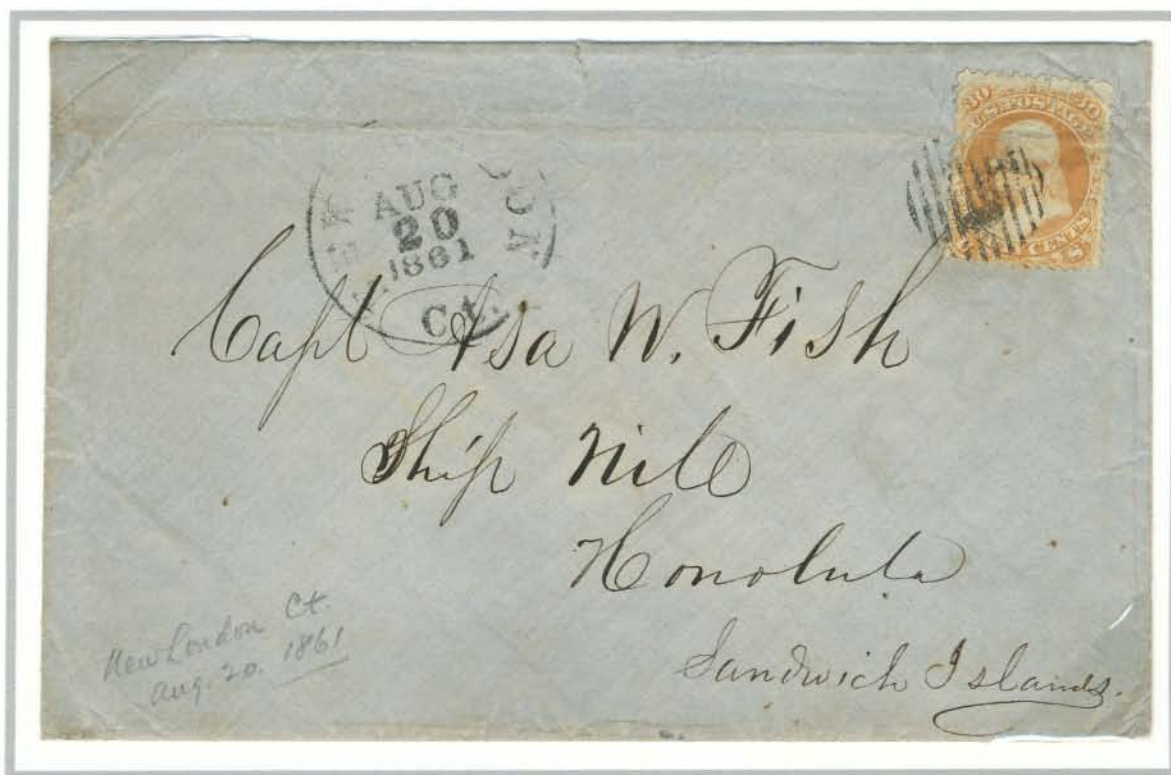 30 30
U.S. POSTAGE
CENTS
AUG
20
1861
Ct.
Capt Asa W. Fish
Ship Nile
Honolulu
Sandwich Islands.
New London Ct.
Aug. 20. 1861